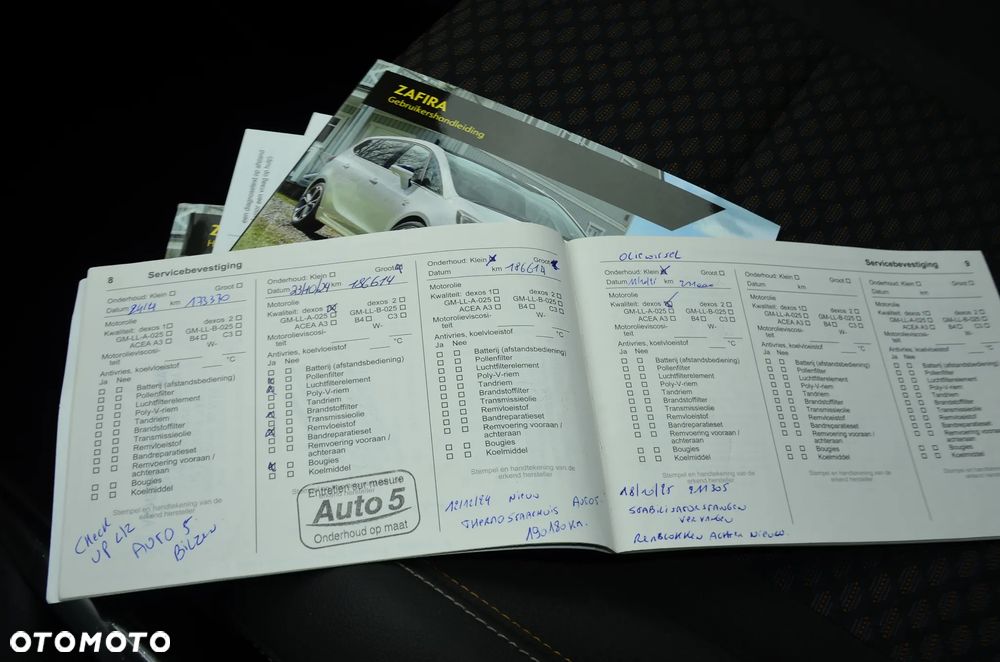 ZAFIRA
Gebruikershandleiding
8
Servicebevestiging
Onderhoud: Klein Groot
Datum 24/4 km 173370
Motorolie
Kwaliteit: dexos 1 dexos 2
GM-LL-A-025 GM-LL-B-025
ACEA A3 B4 C3
Motorolieviscosi- W-
teit
Antivries, koelvloeistof °C
Ja Nee
Batterij (afstandsbediening)
Pollenfilter
Luchtfilterelement
Poly-V-riem
Tandriem
Brandstoffilter
Transmissieolie
Remvloeistof
Bandreparatieset
Remvoering vooraan /
achteraan
Bougies
Koelmiddel
Stempel en handtekening van de
erkend hersteller
CHECK
UP
AUTO 5
BILZEN
Onderhoud: Klein Groot
Datum 23/10/24 km 186614
Motorolie
Kwaliteit: dexos 1 dexos 2
GM-LL-A-025 GM-LL-B-025
ACEA A3 B4 C3
Motorolieviscosi- W-
teit
Antivries, koelvloeistof °C
Ja Nee
Batterij (afstandsbediening)
Pollenfilter
Luchtfilterelement
Poly-V-riem
Tandriem
Brandstoffilter
Transmissieolie
Remvloeistof
Bandreparatieset
Remvoering vooraan /
achteraan
Bougies
Koelmiddel
Entretien sur mesure
Auto 5
Onderhoud op maat
Onderhoud: Klein Groot
Datum km 186614
Motorolie
Kwaliteit: dexos 1 dexos 2
GM-LL-A-025 GM-LL-B-025
ACEA A3 B4 C3
Motorolieviscosi- W-
teit
Antivries, koelvloeistof °C
Ja Nee
Batterij (afstandsbediening)
Pollenfilter
Luchtfilterelement
Poly-V-riem
Tandriem
Brandstoffilter
Transmissieolie
Remvloeistof
Bandreparatieset
Remvoering vooraan /
achteraan
Bougies
Koelmiddel
Stempel en handtekening van de
erkend hersteller
12/12/24 NIEUW AUTO5
THERMOSTAATHUIS
190180 KM.
OLIEWISSEL
Servicebevestiging
9
Onderhoud: Klein Groot
Datum km
Motorolie
Kwaliteit: dexos 1 dexos 2
GM-LL-A-025 GM-LL-B-025
ACEA A3 B4 C3
Motorolieviscosi- W-
teit
Antivries, koelvloeistof °C
Ja Nee
Batterij (afstandsbediening)
Pollenfilter
Luchtfilterelement
Poly-V-riem
Tandriem
Brandstoffilter
Transmissieolie
Remvloeistof
Bandreparatieset
Remvoering vooraan /
achteraan
Bougies
Koelmiddel
Stempel en handtekening van de
erkend hersteller
18/10/25 211305
STABILISATORSTANGEN
VERVANGEN
REMBLOKKEN ACHTER NIEUW.
Onderhoud: Klein Groot
Datum km
Motorolie
Kwaliteit: dexos 1 dexos 2
GM-LL-A-025 GM-LL-B-025
ACEA A3 B4 C3
Motorolieviscosi- W-
teit
Antivries, koelvloeistof °C
Ja Nee
Batterij (afstandsbediening)
Pollenfilter
Luchtfilterelement
Poly-V-riem
Tandriem
Brandstoffilter
Transmissieolie
Remvloeistof
Bandreparatieset
Remvoering vooraan /
achteraan
Bougies
Koelmiddel
Stempel en handtekening van de
erkend hersteller
Onderhoud: Klein
Datum
Motorolie
Kwaliteit: dexos 1
GM-LL-A-025
ACEA A3
Motorolieviscosi-
teit
Antivries, koelvloeistof
Ja Nee
Batterij (afstandsbediening)
Pollenfilter
Luchtfilterelement
Poly-V-riem
Tandriem
Brandstoffilter
Transmissieolie
Remvloeistof
Bandreparatieset
Remvoering
achteraan
Bougies
Koelmiddel
Stempel en
OTOMOTO